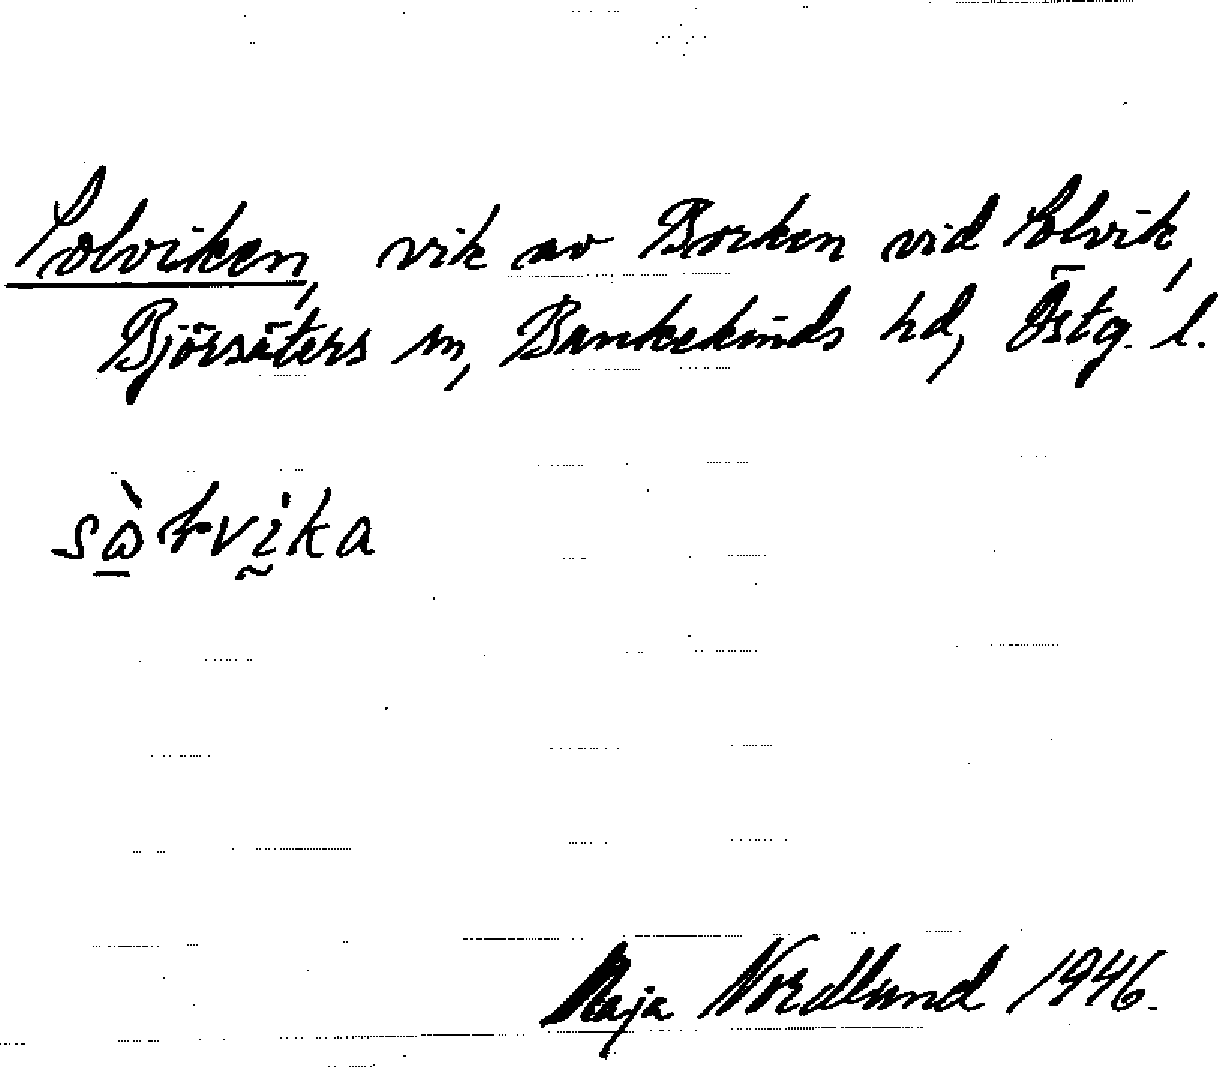 Solviken, vik av Borken vid Solvik,
Björsäters sn, Bankekinds hd, Östg. l.
sὼlvḭka
Maja Nordlund 1946.